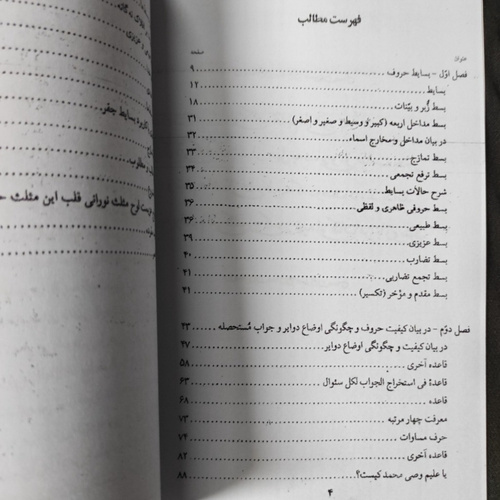 فهرست مطالب
عنوان صفحه
فصل اوّل - بسایط حروف ۹
بسایط ۱۲
بسط زُبر و بیّنات ۱۸
بسط مداخل اربعه (کبیر و وسیط و صغیر و اصغر) ۳۱
در بیان مداخل و مخارج اسماء ۳۲
بسط تمازج ۳۳
بسط ترفع تجمعی ۳۴
شرح حالات بسایط ۳۵
بسط حروفی ظاهری و لفظی ۳۶
بسط طبیعی ۳۶
بسط عزیزی ۳۹
بسط تضارب ۴۰
بسط تجمع تضاربی ۴۱
بسط مقدم و مؤخر (تکسیر) ۴۱
فصل دوّم - در بیان کیفیت حروف و چگونگی اوضاع دوایر و جواب مُستحصله ۴۳
در بیان کیفیت و چگونگی اوضاع دوایر ۴۷
قاعده آخری ۵۸
قاعدهٔ فی استخراج الجواب لکل سئوال ۶۳
قاعده ۶۸
معرفت چهار مرتبه ۷۳
حرف مساوات ۷۴
قاعده آخری ۸۲
یا علیم وصی محمد کیست؟ ۸۸
۴
بسایط جفر
مطلوب
لوح مثلث نورانی قلب این مثلث